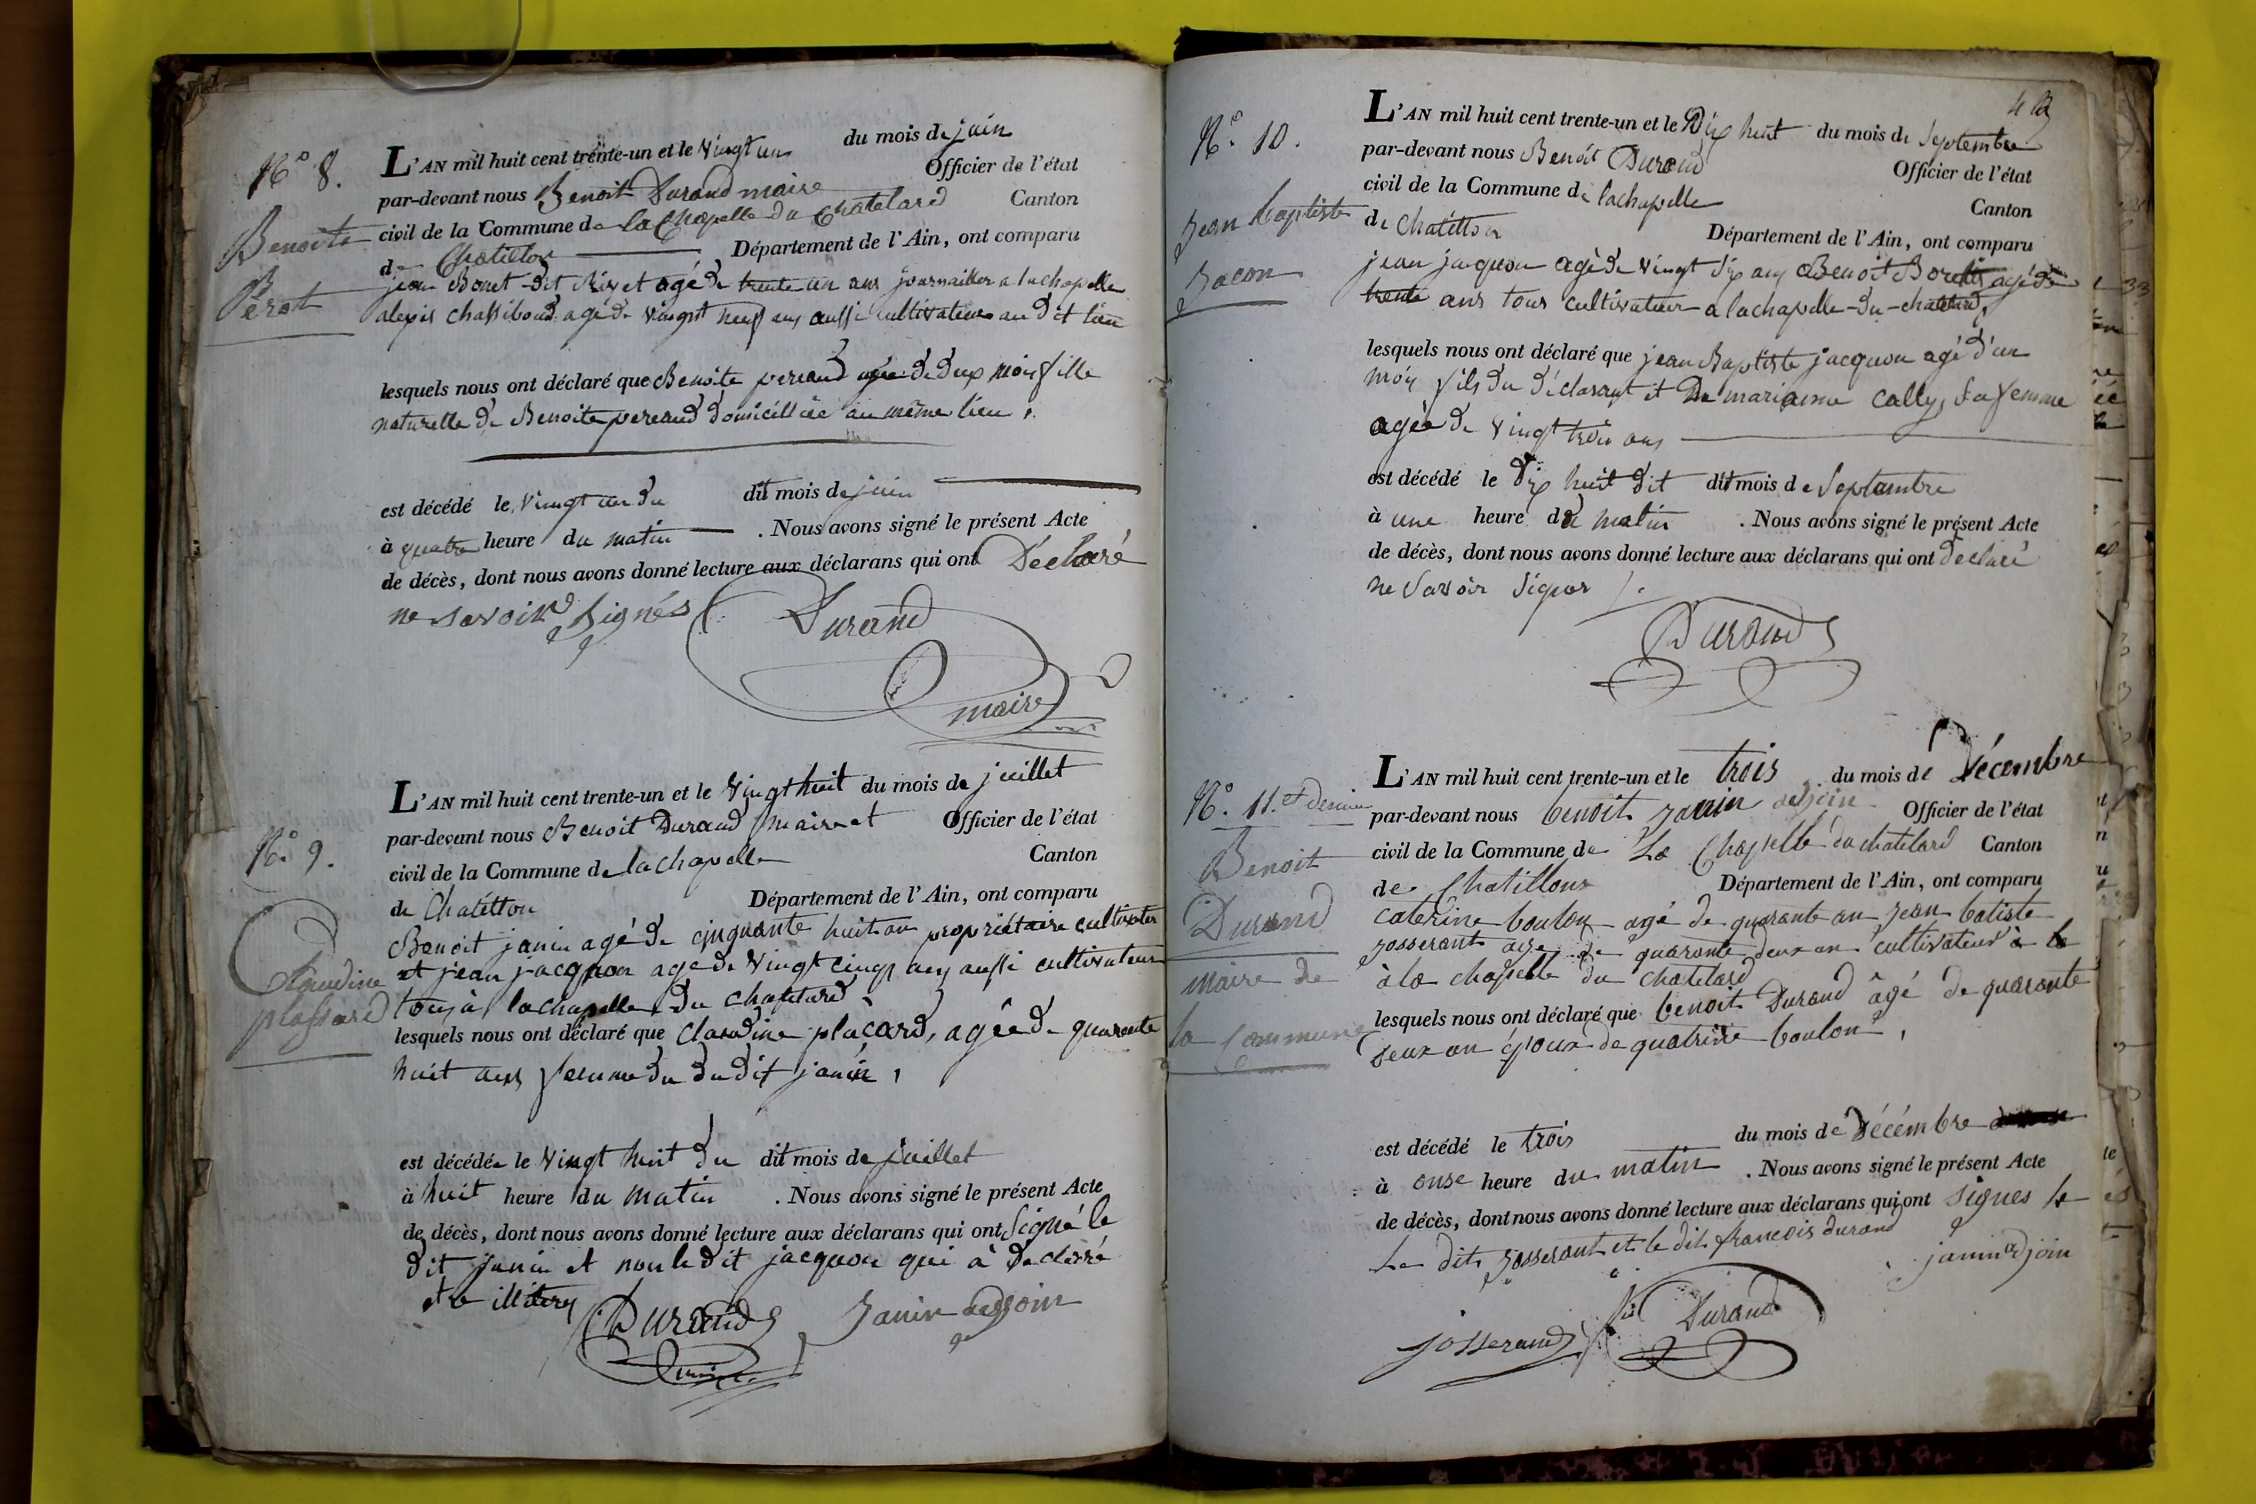 N.º 8.
Benoite
Pérot
L'AN mil huit cent trente-un et le vingt un du mois de juin
par-devant nous Benoit Durand maire Officier de l'état
civil de la Commune de la Chapelle du Chatelard Canton
de Chatillon Département de l'Ain, ont comparu
jean Bonet dit Rivet agé de trente un ans journallier a lachapelle
alexis chassiboud agé de vingt neuf ans aussi cultivateur au dit lieu
lesquels nous ont déclaré que Benoite perraud agée de deux mois fille
naturelle de Benoite perraud domicilliée au même lieu.
est décédé le vingt un du dit mois de juin
à quatre heure du matin . Nous avons signé le présent Acte
de décès, dont nous avons donné lecture aux déclarans qui ont Déclaré
ne savoir Signés Durand
maire
N.º 9.
Claudine
plassard
L'AN mil huit cent trente-un et le vingt huit du mois de juillet
par-devant nous Benoit Durand maire et Officier de l'état
civil de la Commune de lachapelle Canton
de Chatillon Département de l'Ain, ont comparu
Benoit janin agé de cinquante huit an propriétaire cultivateur
et jean jacquon agé de vingt cinq ans aussi cultivateur
tous à lachapelle du chatelard
lesquels nous ont déclaré que Claudine placard, agée de quarante
huit ans femme du dudit janin,
est décédée le vingt huit du dit mois de juillet
à huit heure du matin . Nous avons signé le présent Acte
de décès, dont nous avons donné lecture aux déclarans qui ont Signé le
dit janin et non le dit jacquon qui à declaré
etre
Durand Janin adjoin
maire
4
N.º 10.
Jean baptiste
Jacon
L'AN mil huit cent trente-un et le Dix huit du mois de Septembre
par-devant nous Benoit Durand Officier de l'état
civil de la Commune de lachapelle Canton
de Chatillon Département de l'Ain, ont comparu
jean jacquon agé de vingt six ans Benoit agé de
trente ans tous cultivateur a lachapelle-du-chatelard,
lesquels nous ont déclaré que jean Baptiste jacquon agé d'un
mois fils du déclarant et De marianne Cally, sa femme
agée de vingt trois ans
est décédé le dix huit dit dit mois de Septembre
à une heure du matin . Nous avons signé le présent Acte
de décès, dont nous avons donné lecture aux déclarans qui ont declaré
ne savoir signer
Durand
N.º 11. et dernier
Benoit
Durand
maire de
la Commune
L'AN mil huit cent trente-un et le trois du mois de Décembre
par-devant nous benoit janin adjoin Officier de l'état
civil de la Commune de La Chapelle du chatelard Canton
de Chatillon Département de l'Ain, ont comparu
caterine boulon agé de quarante an jean batiste
josserant age de quarante deux an cultivateur à la
à la chapelle du chatelard
lesquels nous ont déclaré que benoit Durand âgé de quarante
deux an époux de quatrine boulon,
est décédé le trois du mois de Décémbre
à onse heure du matin . Nous avons signé le présent Acte
de décès, dont nous avons donné lecture aux déclarans qui ont signes le
Le dit josserant et le dit francois durand
janin adjoin
josserand fis Durand